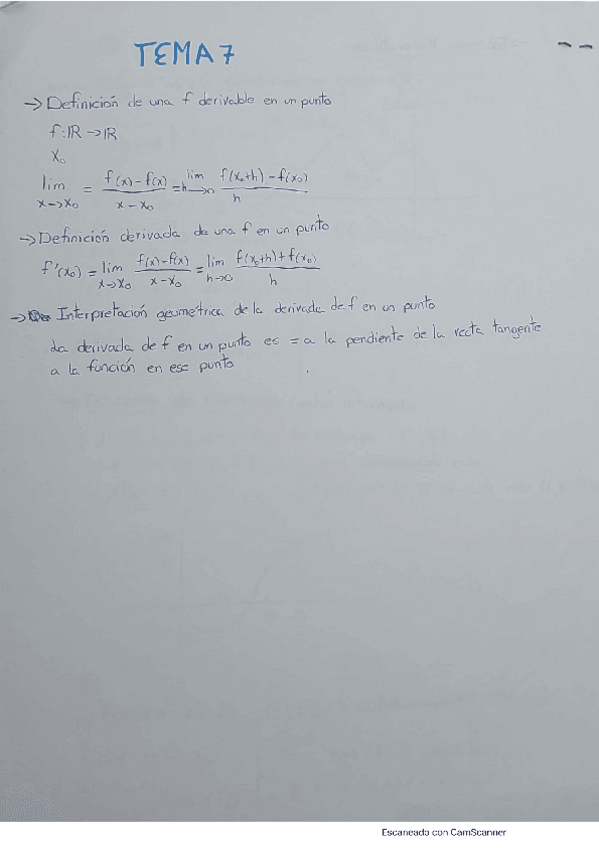 TEMA 7
→ Definición de una f derivable en un punto
f: ℝ → ℝ
x₀
lim x→x₀ = f(x) - f(x) / x - x₀ = lim h→0 f(x₀+h) - f(x₀) / h
→ Definición derivada de una f en un punto
f'(x₀) = lim x→x₀ f(x) - f(x) / x - x₀ = lim h→0 f(x₀+h) + f(x₀) / h
→ Interpretación geométrica de la derivada de f en un punto
La derivada de f en un punto es = a la pendiente de la recta tangente
a la función en ese punto
Escaneado con CamScanner